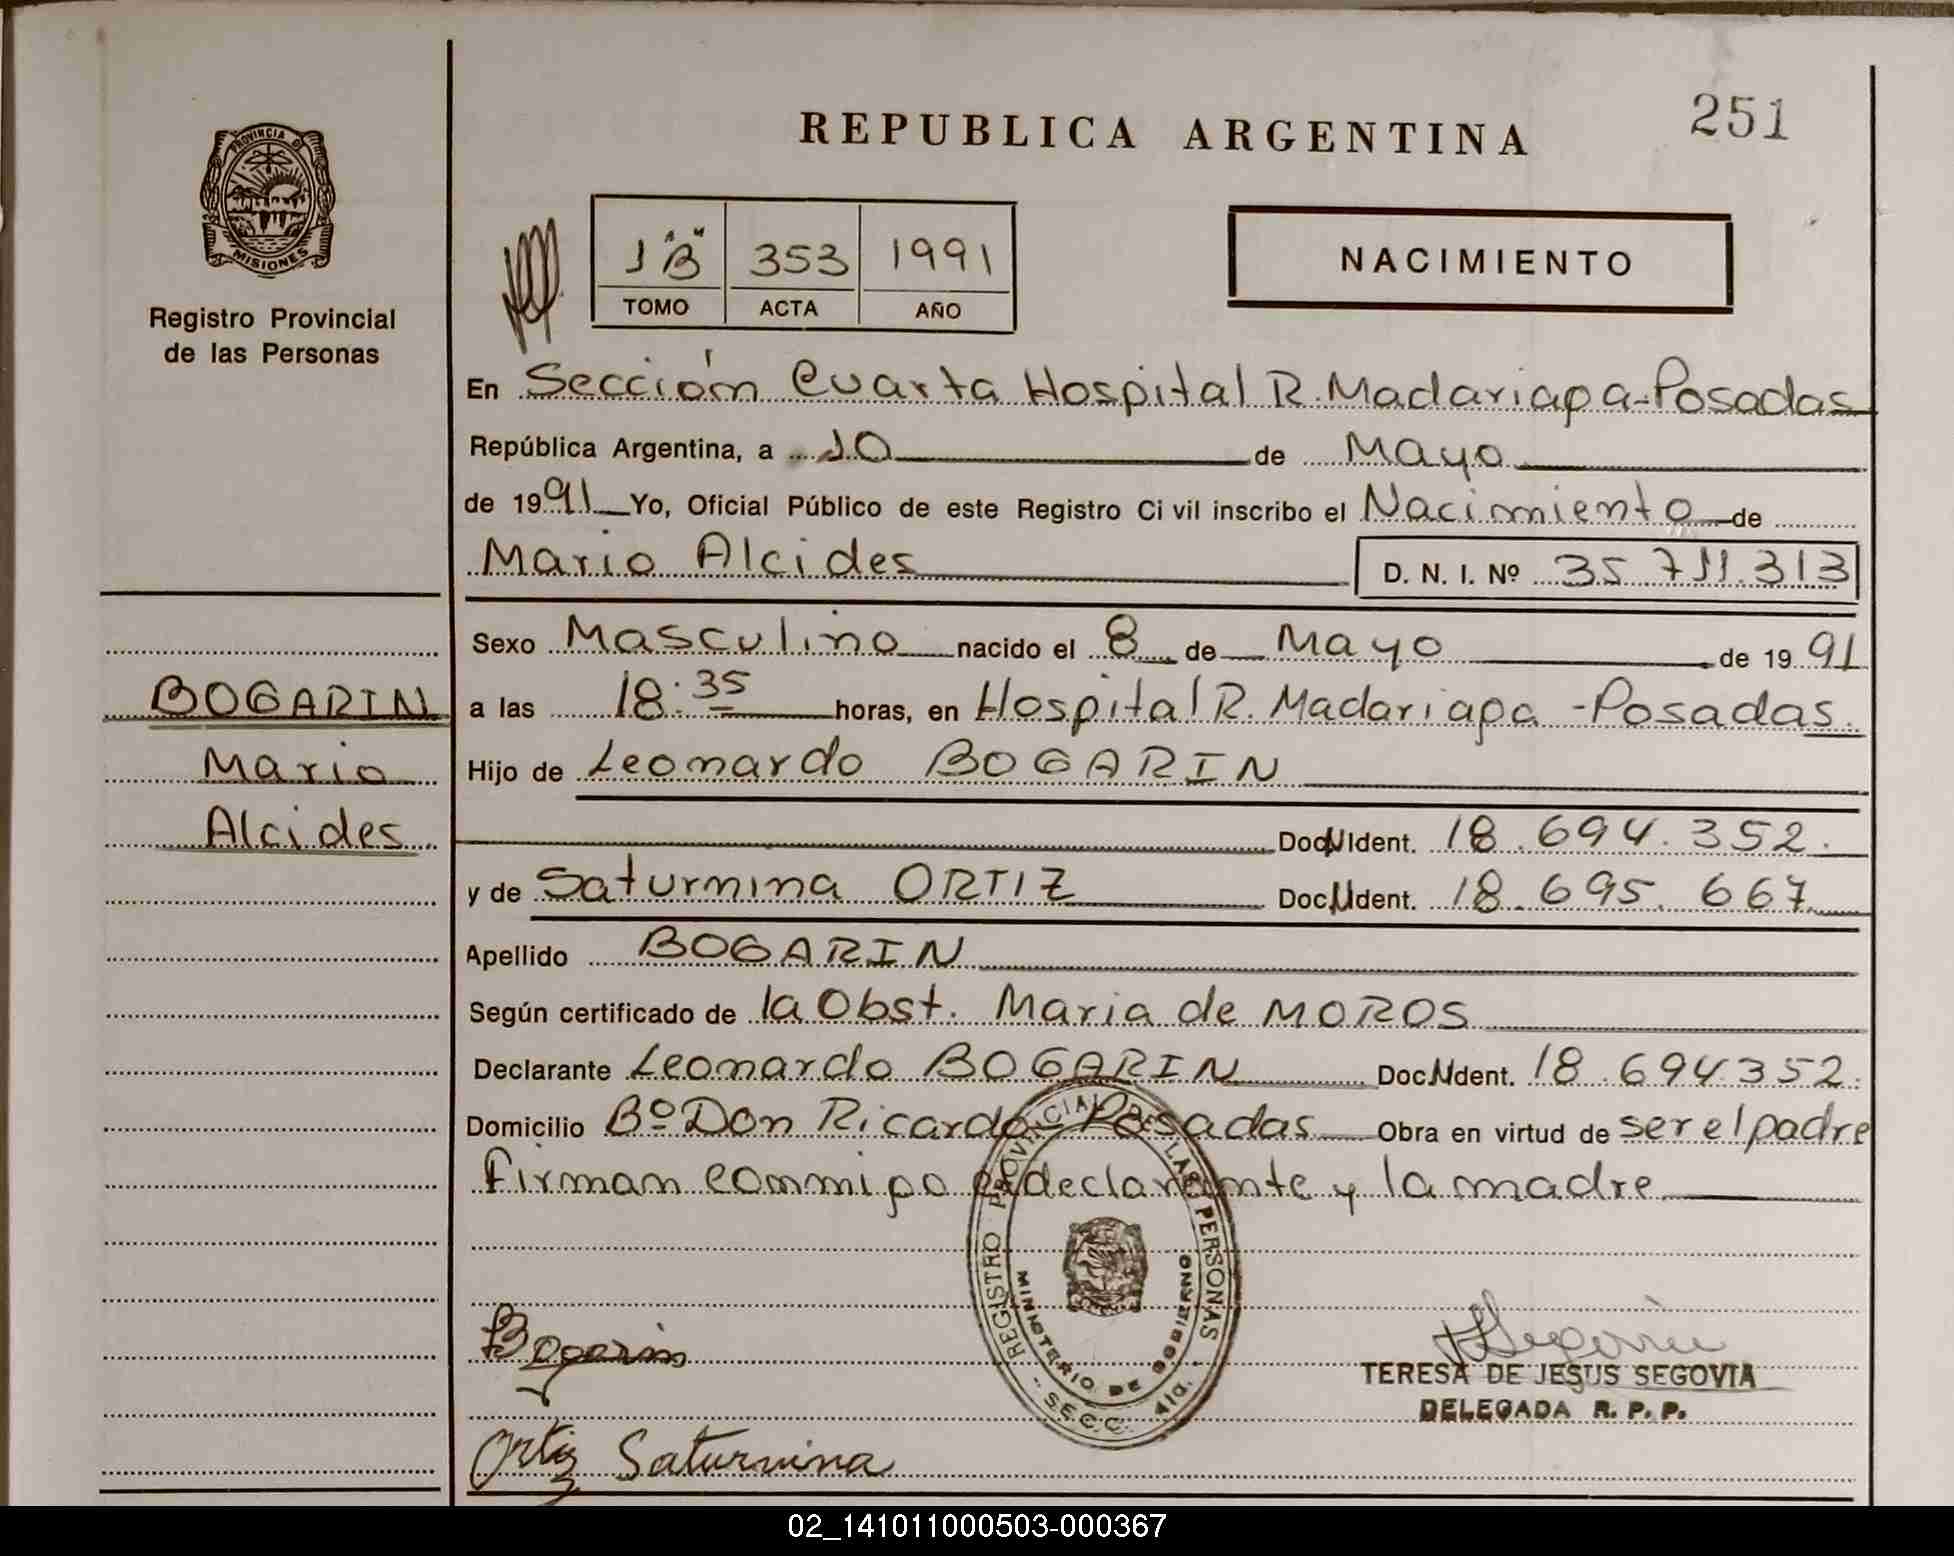 REPUBLICA ARGENTINA
251
PROVINCIA DE
MISIONES
Registro Provincial
de las Personas
1 "B" 353 1991
TOMO ACTA AÑO
NACIMIENTO
En Sección Cuarta Hospital R. Madariaga-Posadas
República Argentina, a 10 de Mayo
de 1991 Yo, Oficial Público de este Registro Civil inscribo el Nacimiento de
Mario Alcides D. N. I. Nº 35 711.313
Sexo Masculino nacido el 8 de Mayo de 1991
BOGARIN
Mario
Alcides
a las 18:35 horas, en Hospital R. Madariaga - Posadas.
Hijo de Leonardo BOGARIN
Doc N Ident. 18.694.352.
y de Saturnina ORTIZ Doc N Ident. 18.695.667
Apellido BOGARIN
Según certificado de la Obst. Maria de MOROS
Declarante Leonardo BOGARIN Doc N Ident. 18.694352.
Domicilio Bº Don Ricardo - Posadas Obra en virtud de ser el padre
Firman conmigo el declarante y la madre
REGISTRO PROVINCIAL DE LAS PERSONAS
MINISTERIO DE GOBIERNO
- SECC. 4ta. -
Bogarin
Segovia
TERESA DE JESUS SEGOVIA
DELEGADA R. P. P.
Ortiz Saturnina
02_141011000503-000367